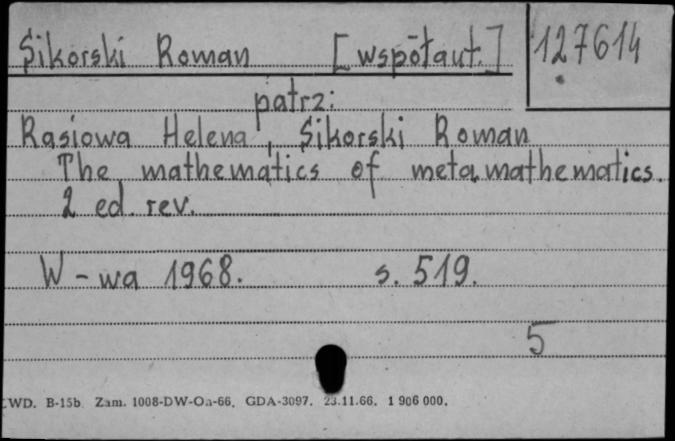 Sikorski Roman [współaut.] 127614
patrz:
Rasiowa Helena, Sikorski Roman
The mathematics of metamathematics.
2 ed. rev.
W-wa 1968. s. 519.
5
WD. B-15b. Zam. 1008-DW-Oa-66. GDA-3097. 23.11.66. 1 906 000.